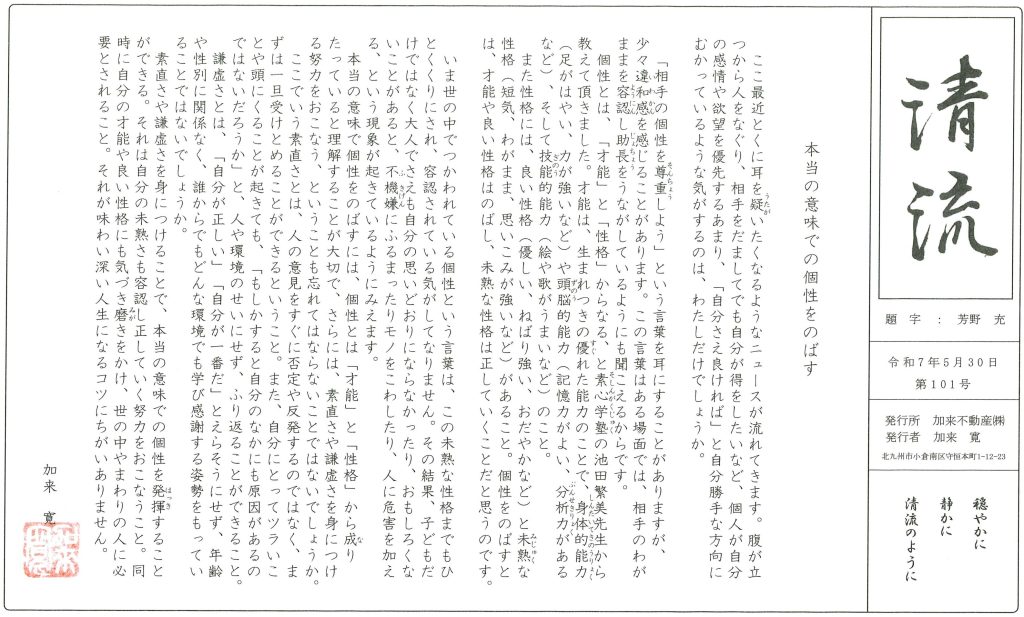 清流
題字：芳野 充
令和7年5月30日
第101号
発行所 加来不動産㈱
発行者 加来 寛
北九州市小倉南区守恒本町1-12-23
穏やかに
静かに
清流のように
本当の意味での個性をのばす
ここ最近とくに耳を疑いたくなるようなニュースが流れてきます。腹が立
つから人をなぐり、相手をだましてでも自分が得をしたいなど、個人が自分
の感情や欲望を優先するあまり、「自分さえ良ければ」と自分勝手な方向に
むかっているような気がするのは、わたしだけでしょうか。
「相手の個性を尊重しよう」という言葉を耳にすることがありますが、
少々違和感を感じることがあります。この言葉はある場面では、相手のわが
ままを容認し助長をうながしているようにも聞こえるからです。
個性とは、「才能」と「性格」からなる、と素心学塾の池田繁美先生から
教えて頂きました。才能は、生まれつきの優れた能力のことで、身体的能力
（足がはやい、力が強いなど）や頭脳的能力（記憶力がよい、分析力がある
など）、そして技能的能力（絵や歌がうまいなど）のこと。
また性格には、良い性格（優しい、ねばり強い、おだやかなど）と未熟な
性格（短気、わがまま、思いこみが強いなど）があること。個性をのばすと
は、才能や良い性格はのばし、未熟な性格は正していくことだと思うのです。
いま世の中でつかわれている個性という言葉は、この未熟な性格までもひ
とくくりにされ、容認されている気がしてなりません。その結果、子どもだ
けではなく大人でさえも自分の思いどおりにならなかったり、おもしろくな
いことがあると、不機嫌にふるまったりモノをこわしたり、人に危害を加え
る、という現象が起きているようにみえます。
本当の意味で個性をのばすには、個性とは「才能」と「性格」から成り
たっていると理解することが大切で、さらには、素直さや謙虚さを身につけ
る努力をおこなう、ということも忘れてはならないことではないでしょうか。
ここでいう素直さとは、人の意見をすぐに否定や反発するのではなく、ま
ずは一旦受けとめることができるということ。また、自分にとってツライこ
とや頭にくることが起きても、「もしかすると自分のなかにも原因があるの
ではないだろうか」と、人や環境のせいにせず、ふり返ることができること。
謙虚さとは、「自分が正しい」「自分が一番だ」とえらそうにせず、年齢
や性別に関係なく、誰からでもどんな環境でも学び感謝する姿勢をもってい
ることではないでしょうか。
素直さや謙虚さを身につけることで、本当の意味での個性を発揮すること
ができる。それは自分の未熟さも容認し正していく努力をおこなうこと。同
時に自分の才能や良い性格にも気づき磨きをかけ、世の中やまわりの人に必
要とされること。それが味わい深い人生になるコツにちがいありません。
加来 寛